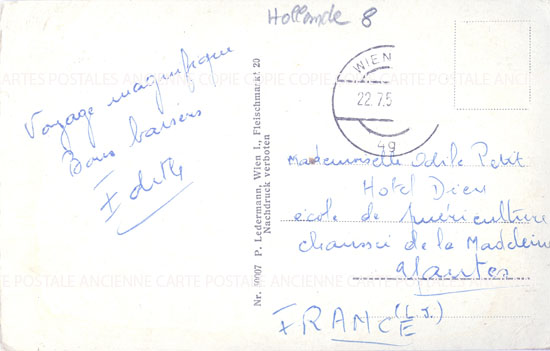 Hollande 8
Voyage magnifique
Bons baisers
Edith
Nr. P. Ledermann, Wien I., Fleischmarkt 20
Nachdruck verboten
WIEN
22.7.5
49
Mademoiselle Odile Petit
Hotel Dieu
école de puériculture
chaussée de la Madeleine
Nantes
(L.I.)
FRANCE
CARTES POSTALES ANCIENNE COPIE COPIE COPIE CARTE POSTALE ANCIENNE
POSTALE ANCIENNE CARTE POSTALE ANCIENNE CARTE POSTALE ANCIENNE